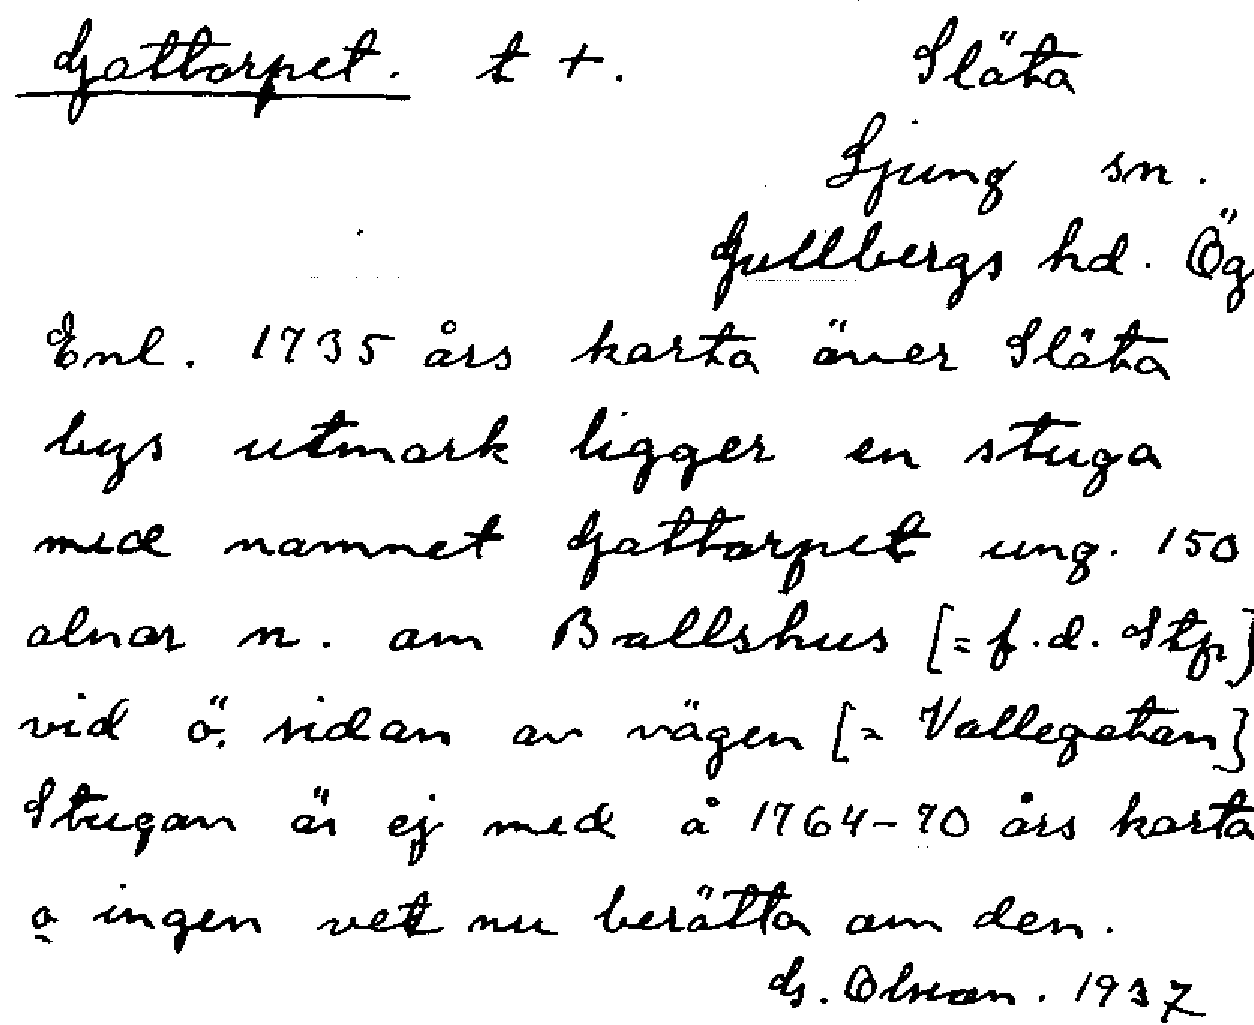 Gattorpet. t +. Släta
Ljung sn.
Gullbergs hd. Ög
Enl. 1735 års karta över Släta
bys utmark ligger en stuga
med namnet Gattorpet ung. 150
alnar n. om Ballshus [= f.d. Stp]
vid ö. sidan av vägen [= Vallegatan]
Stugan är ej med å 1764-70 års karta
o ingen vet nu berätta om den.
G. Olsson. 1937